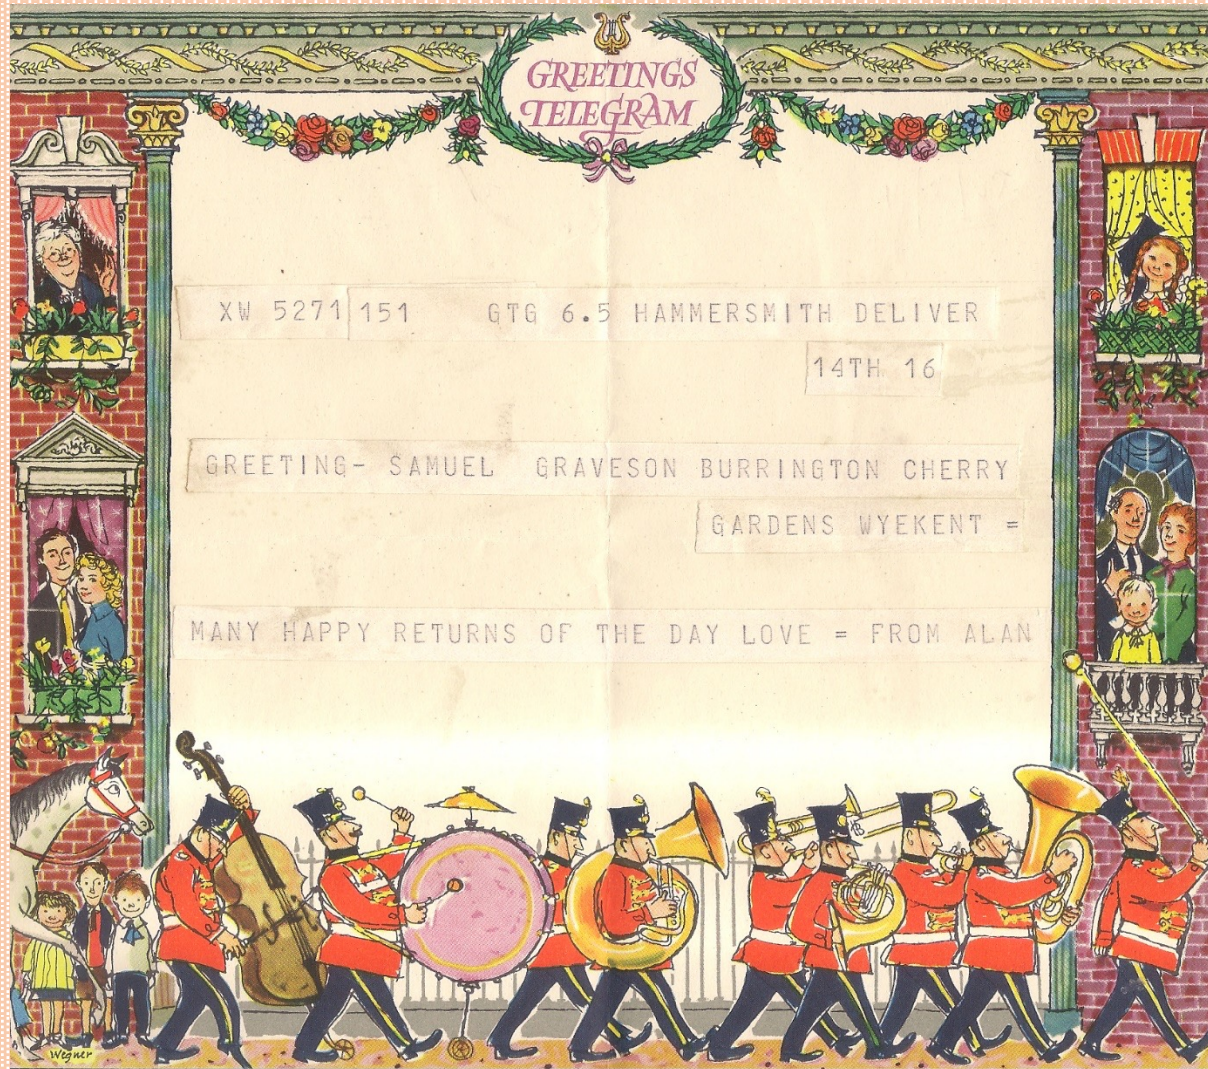 GREETINGS
TELEGRAM
XW 5271 151 GTG 6.5 HAMMERSMITH DELIVER
14TH 16
GREETING- SAMUEL GRAVESON BURRINGTON CHERRY
GARDENS WYEKENT =
MANY HAPPY RETURNS OF THE DAY LOVE = FROM ALAN
Wegner